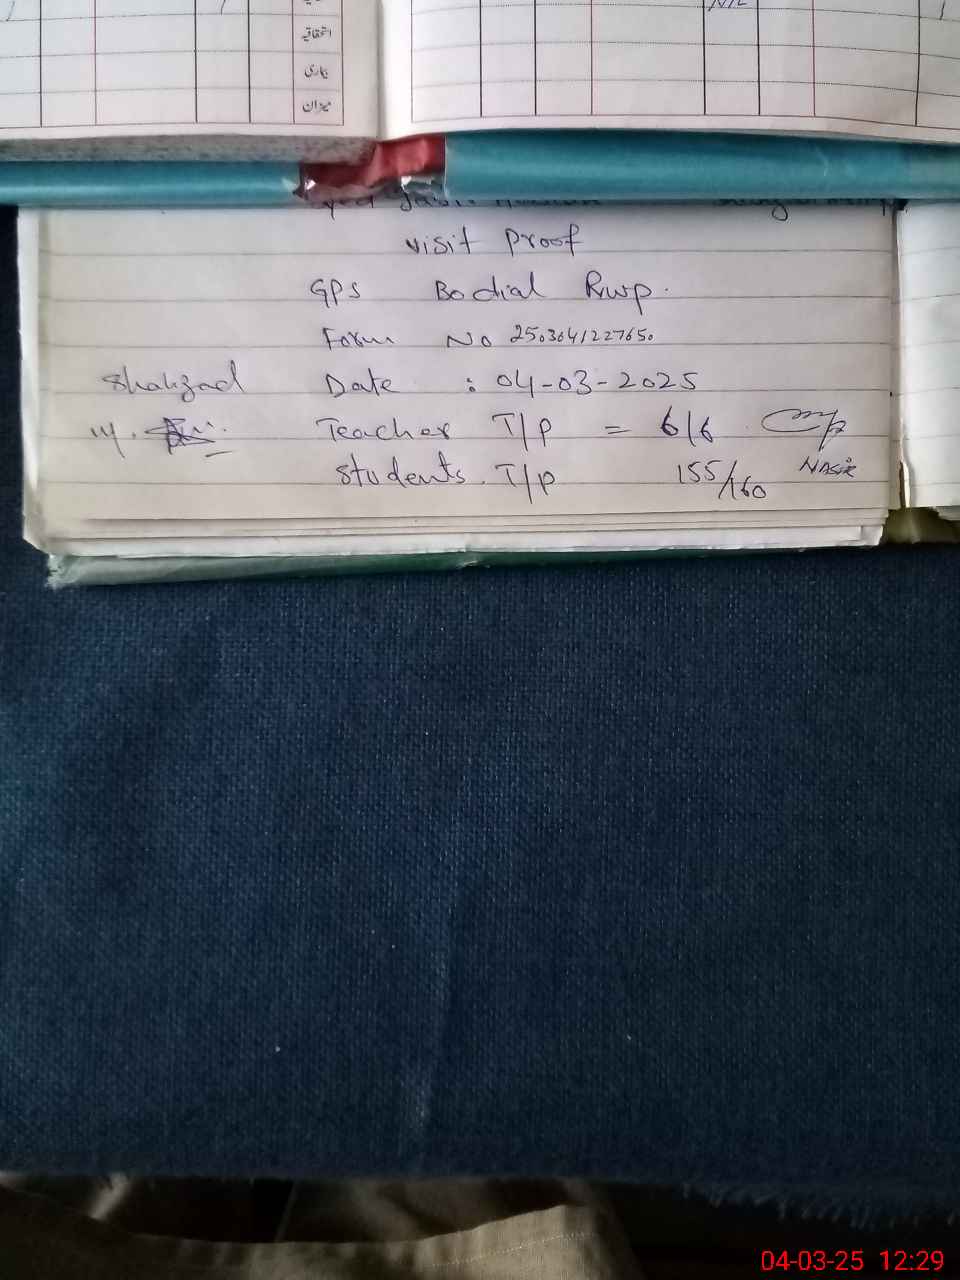 NIL
اتفاقیہ
بیماری
میزان
visit proof
GPS Bodial Rwp.
Form No 2503041227650
Shahzad Date : 04-03-2025
Teacher T/P = 6/6
Students. T/P 155/160 NASIR
04-03-25 12:29